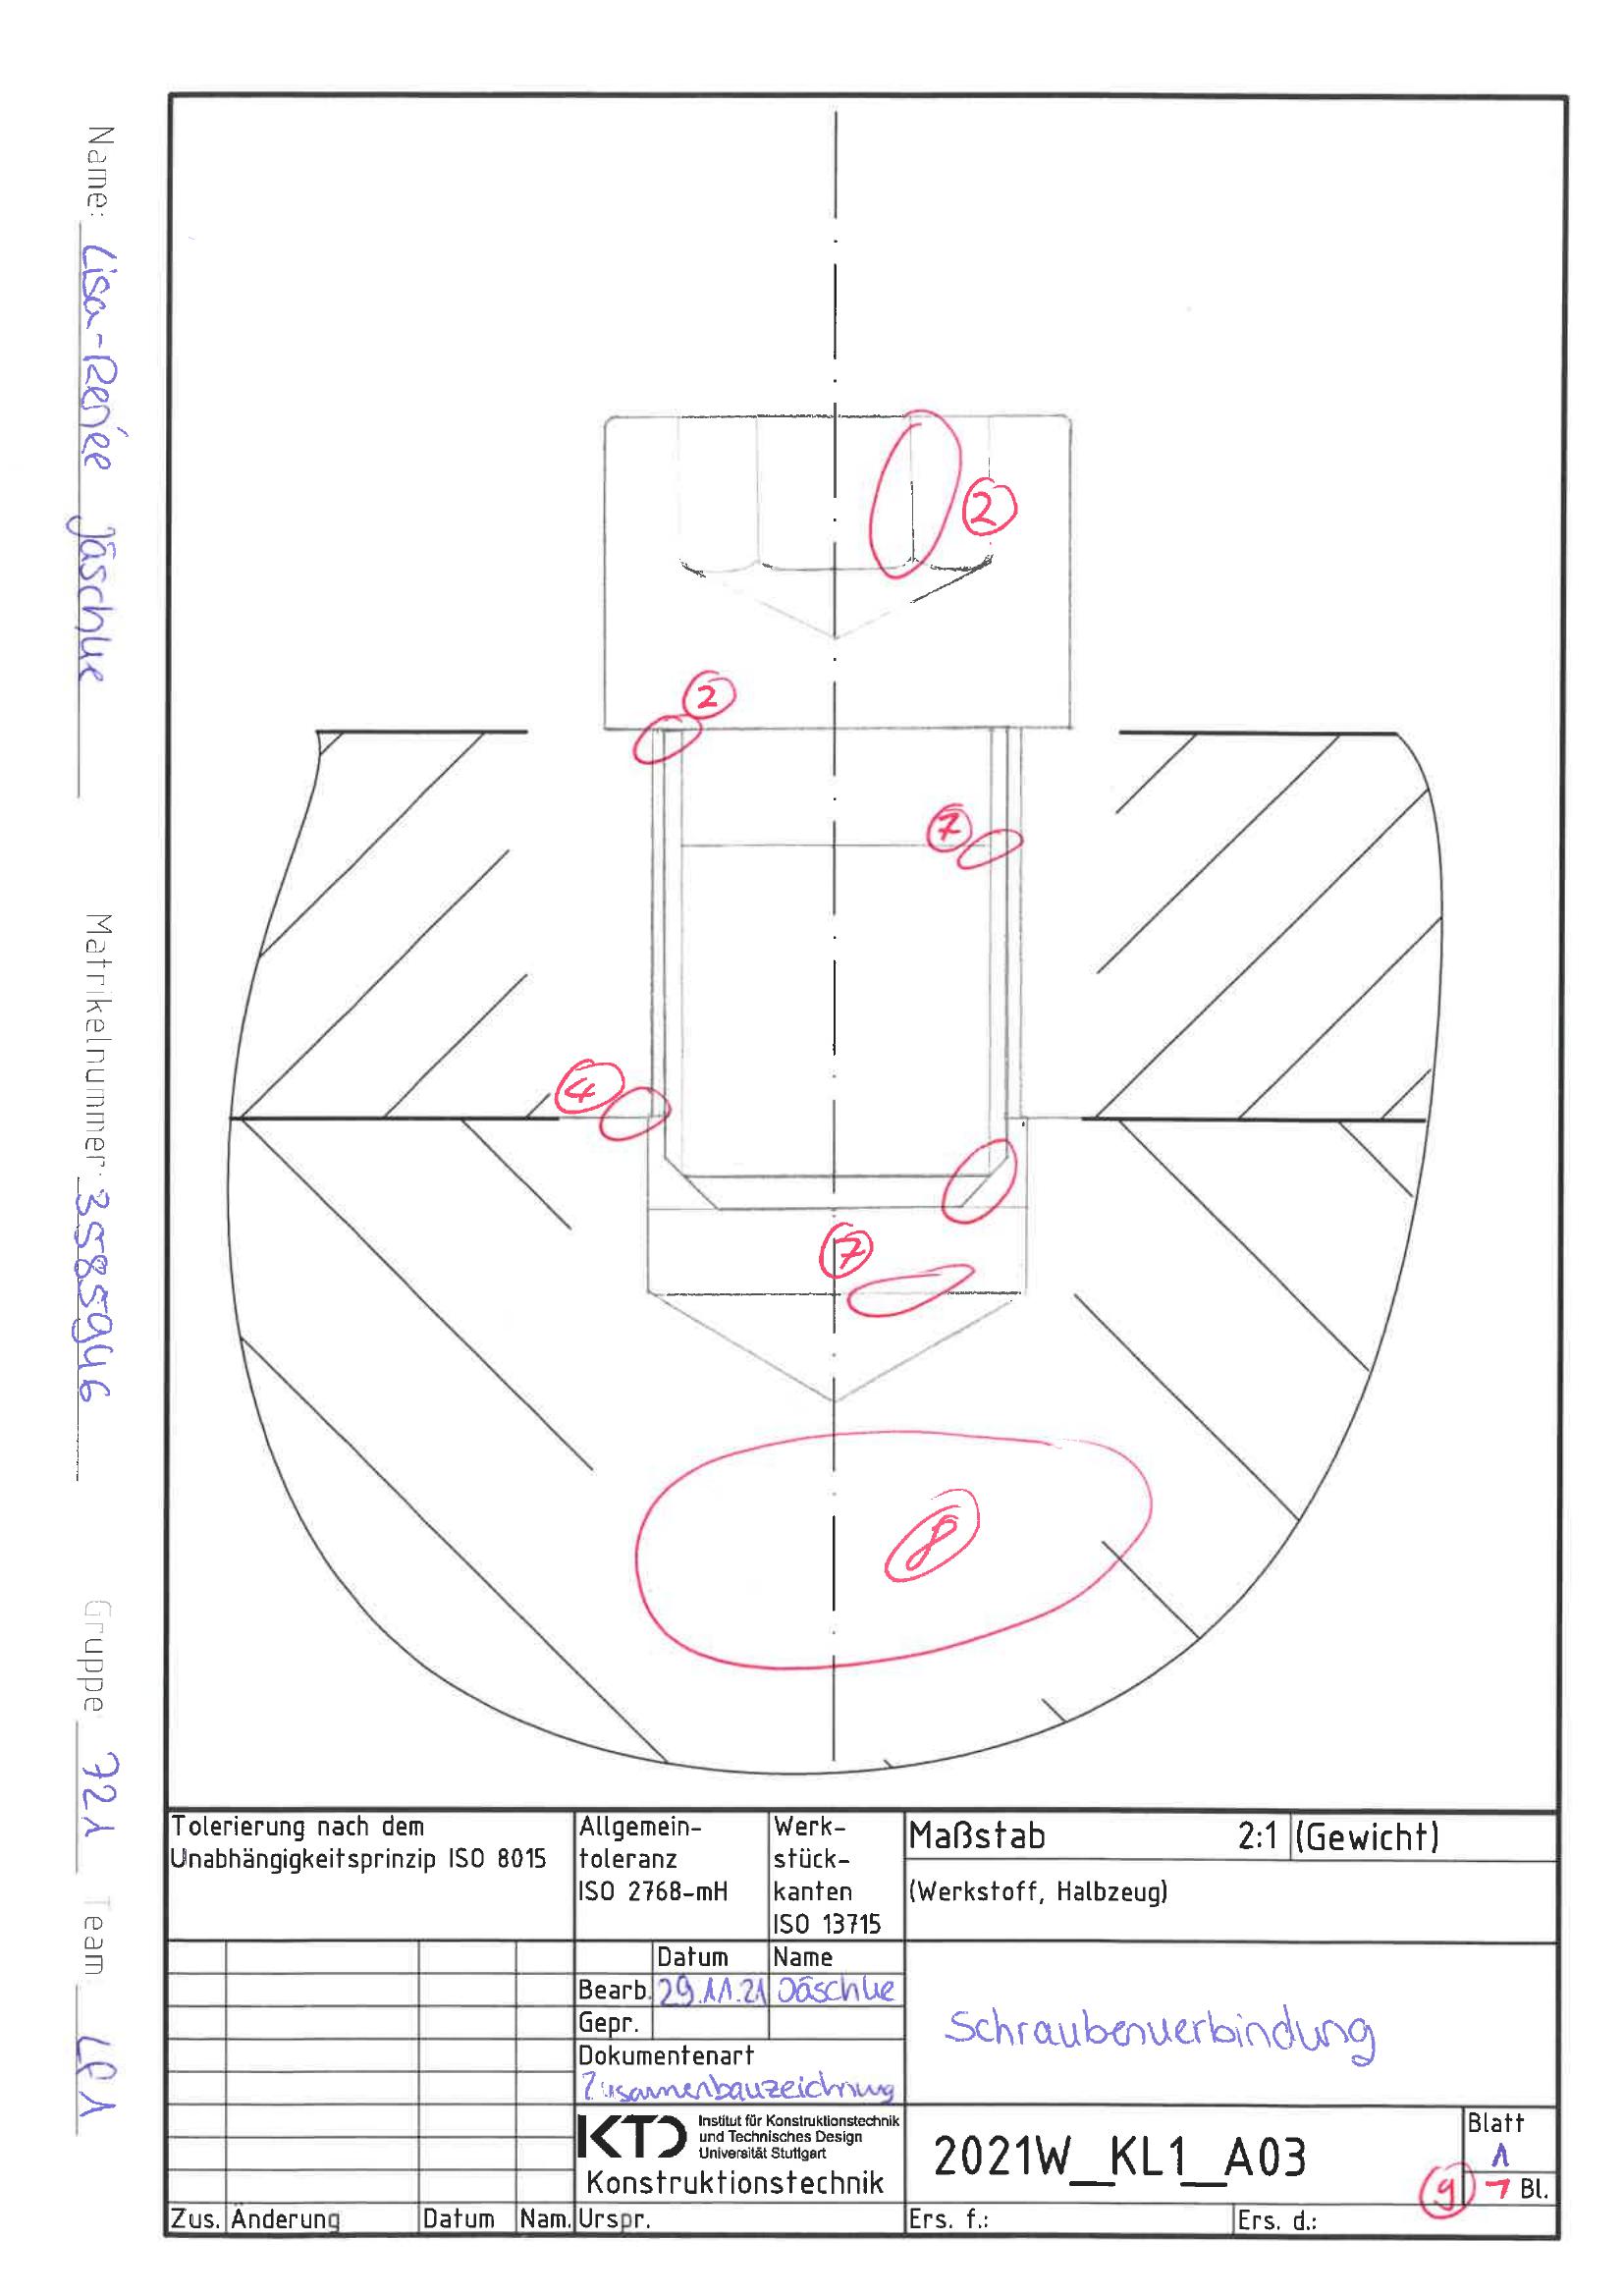 Name: Lisa-Renée Jäschke
Matrikelnummer: 3585946
Gruppe 721 Team LP1
2
2
7
4
7
8
Tolerierung nach dem
Unabhängigkeitsprinzip ISO 8015
Allgemein-
toleranz
ISO 2768-mH
Werk-
stück-
kanten
ISO 13715
Maßstab 2:1 (Gewicht)
(Werkstoff, Halbzeug)
Datum Name
Bearb. 29.11.21 Jäschke
Gepr.
Dokumentenart
Zusamenbauzeichnung
Schraubenverbindung
KTD Institut für Konstruktionstechnik
und Technisches Design
Universität Stuttgart
Konstruktionstechnik
2021W_KL1_A03
Blatt
1
9 1 Bl.
Zus. Änderung Datum Nam. Urspr. Ers. f.: Ers. d.: